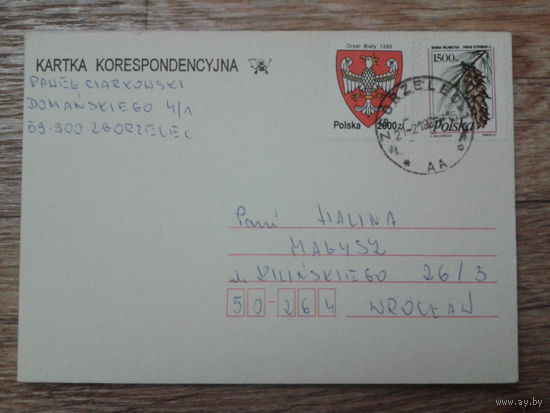 KARTKA KORESPONDENCYJNA
PAWEŁ CIARKOWSKI
DOMAŃSKIEGO 4/1
59-300 ZGORZELEC
Orzeł Biały 1295
Polska 2000 zł
1500 zł
Polska
ZGORZELEC 1
AA
Pani HALINA
MAŁYSZ
ul. KILIŃSKIEGO 26/3
50-264 WROCŁAW
www.ay.by